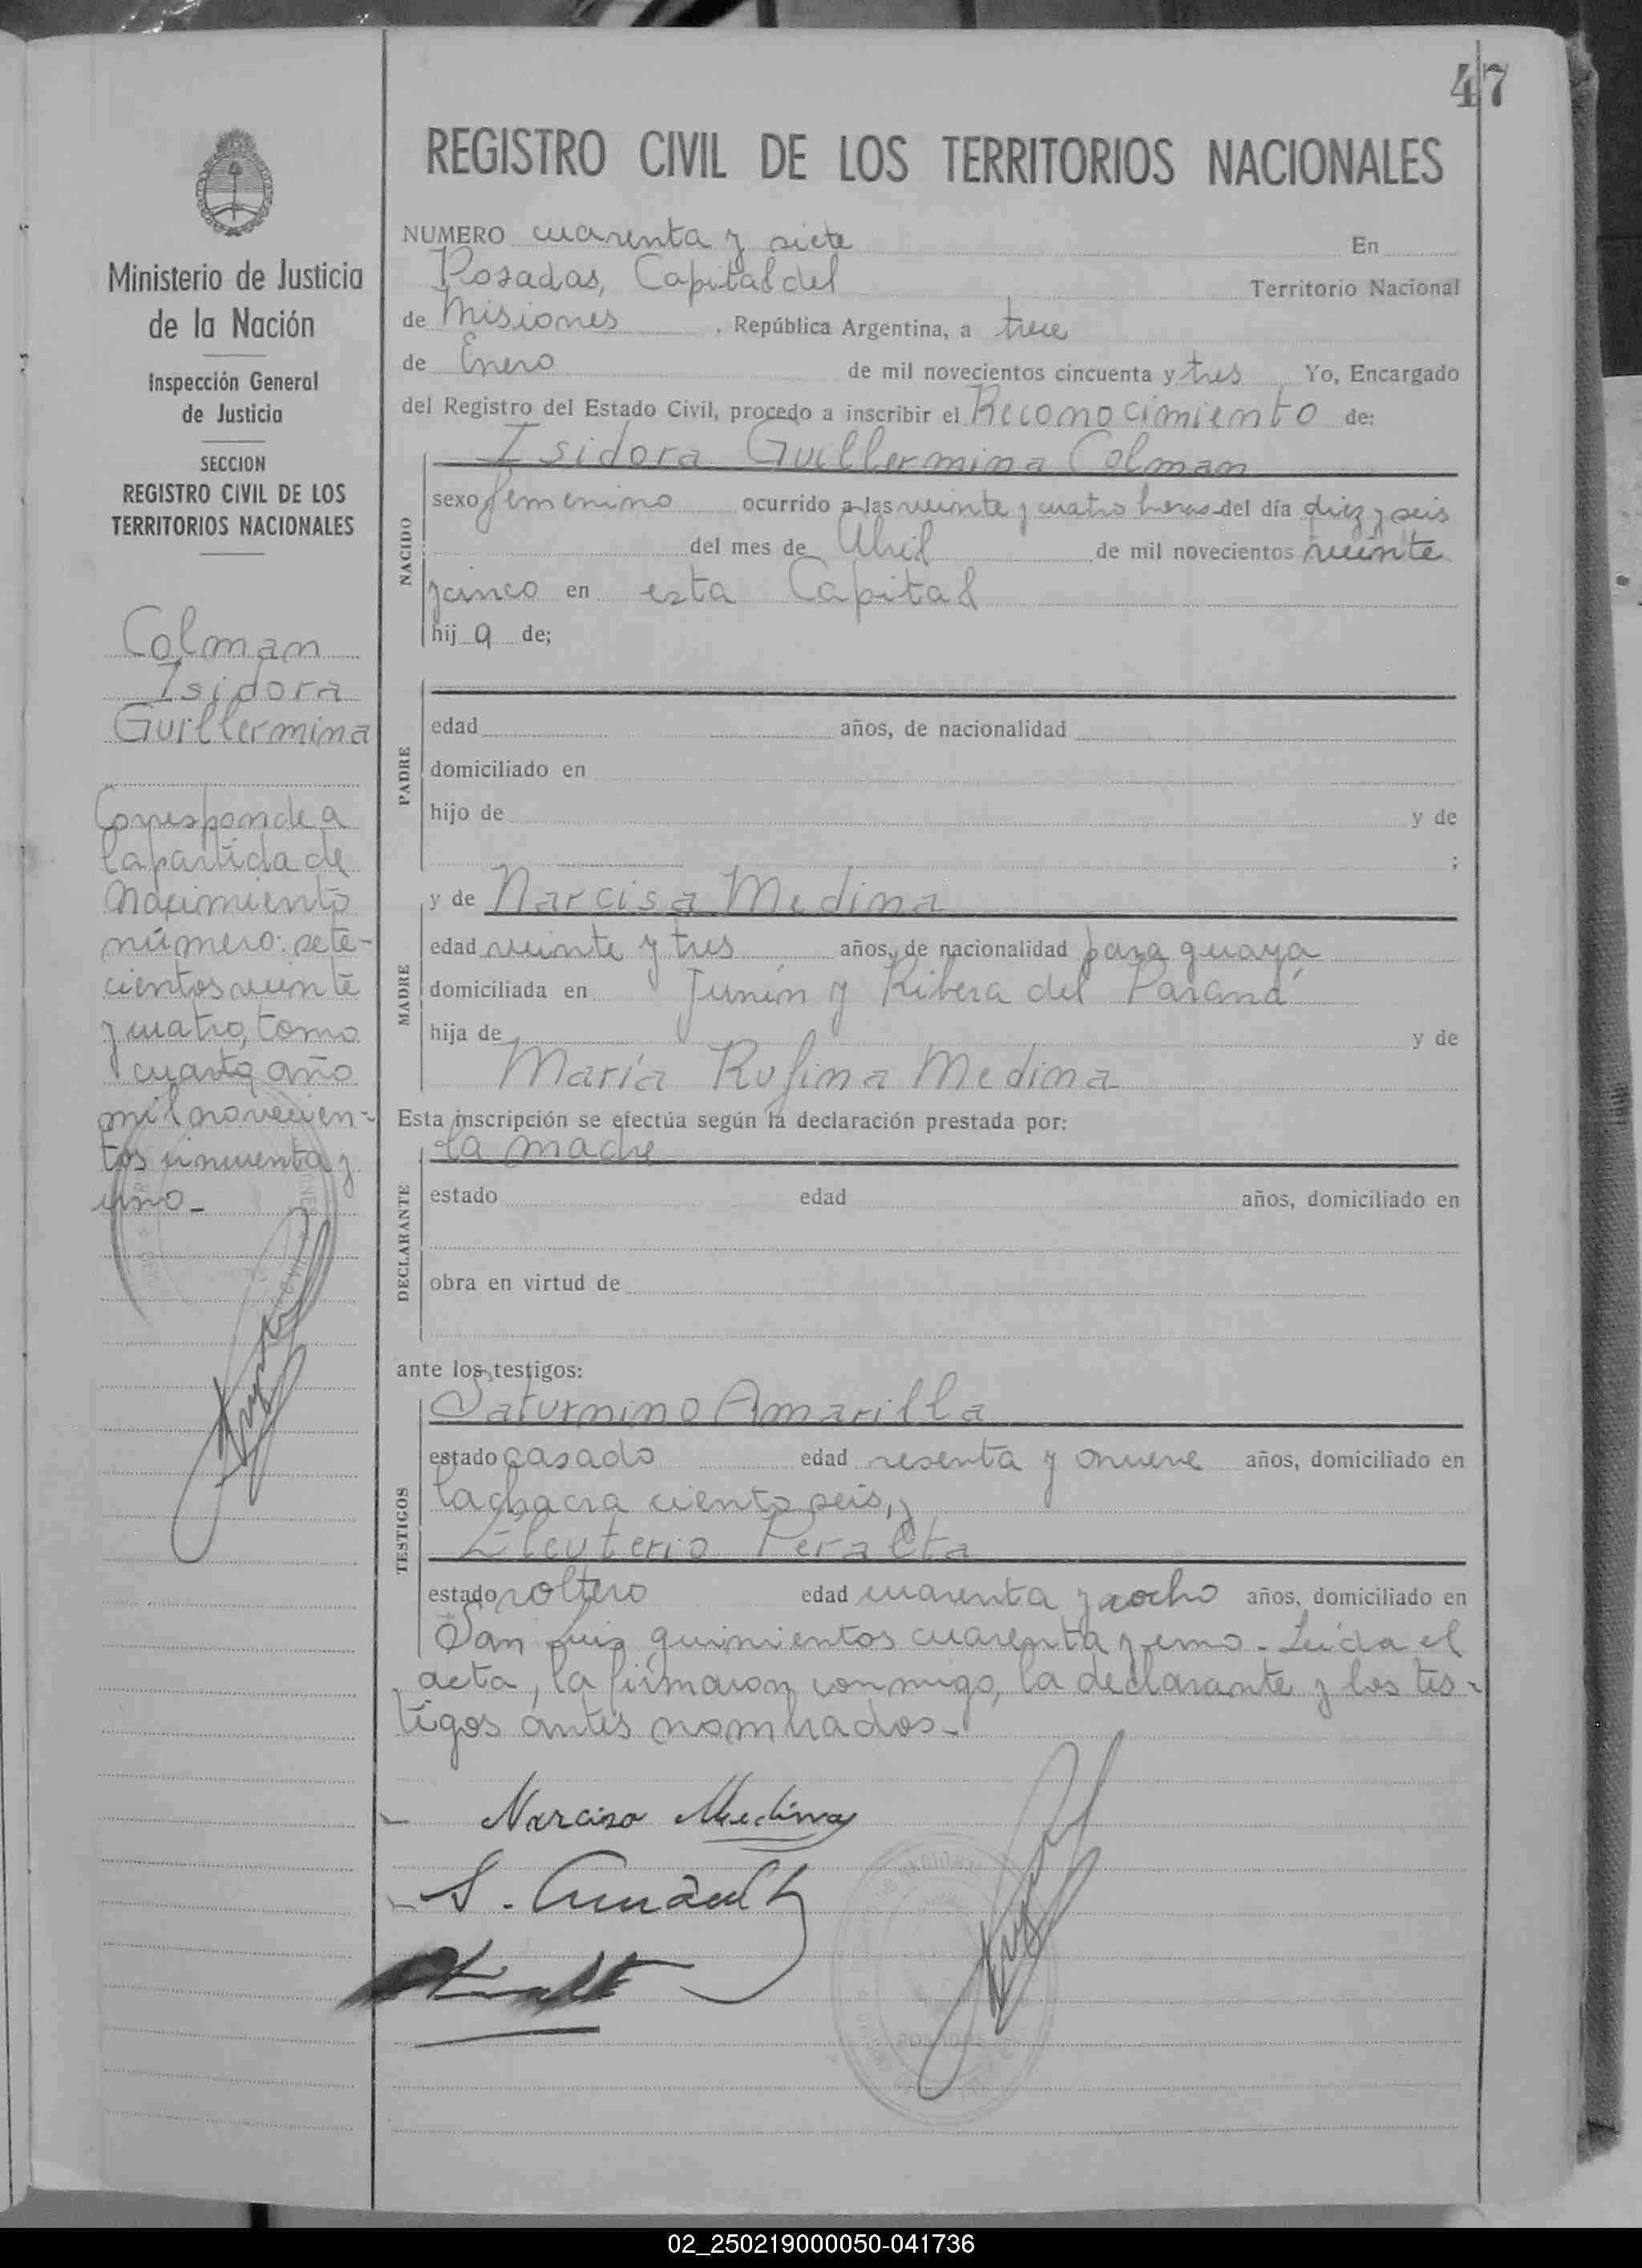 47
REGISTRO CIVIL DE LOS TERRITORIOS NACIONALES
Ministerio de Justicia
de la Nación
Inspección General
de Justicia
SECCION
REGISTRO CIVIL DE LOS
TERRITORIOS NACIONALES
Colman
Isidora
Guillermina
Corresponde a
la partida de
nacimiento
número: sete-
cientos veinte
y cuatro, tomo
cuarto año
mil novecien-
tos cincuenta y
uno.-
NUMERO cuarenta y siete En
Posadas, Capital del Territorio Nacional
de Misiones, República Argentina, a trece
de Enero de mil novecientos cincuenta y tres Yo, Encargado
del Registro del Estado Civil, procedo a inscribir el Reconocimiento de:
Isidora Guillermina Colman
NACIDO
sexo femenino ocurrido a las veinte y cuatro horas del día diez y seis
del mes de Abril de mil novecientos veinte
y cinco en esta Capital
hij a de;
PADRE
edad años, de nacionalidad
domiciliado en
hijo de y de
;
y de Narcisa Medina
MADRE
edad veinte y tres años, de nacionalidad paraguaya
domiciliada en Junín y Ribera del Paraná
hija de y de
María Rufina Medina
Esta inscripción se efectúa según la declaración prestada por:
la madre
DECLARANTE
estado edad años, domiciliado en
obra en virtud de
ante los testigos:
Saturnino Amarilla
TESTIGOS
estado casado edad sesenta y nueve años, domiciliado en
la chacra ciento seis, y
Eleuterio Peralta
estado soltero edad cuarenta y ocho años, domiciliado en
San Luis quinientos cuarenta y uno.- Leída el
acta, la firmaron conmigo, la declarante y los tes-
tigos antes nombrados.-
Narcisa Medina
02_250219000050-041736